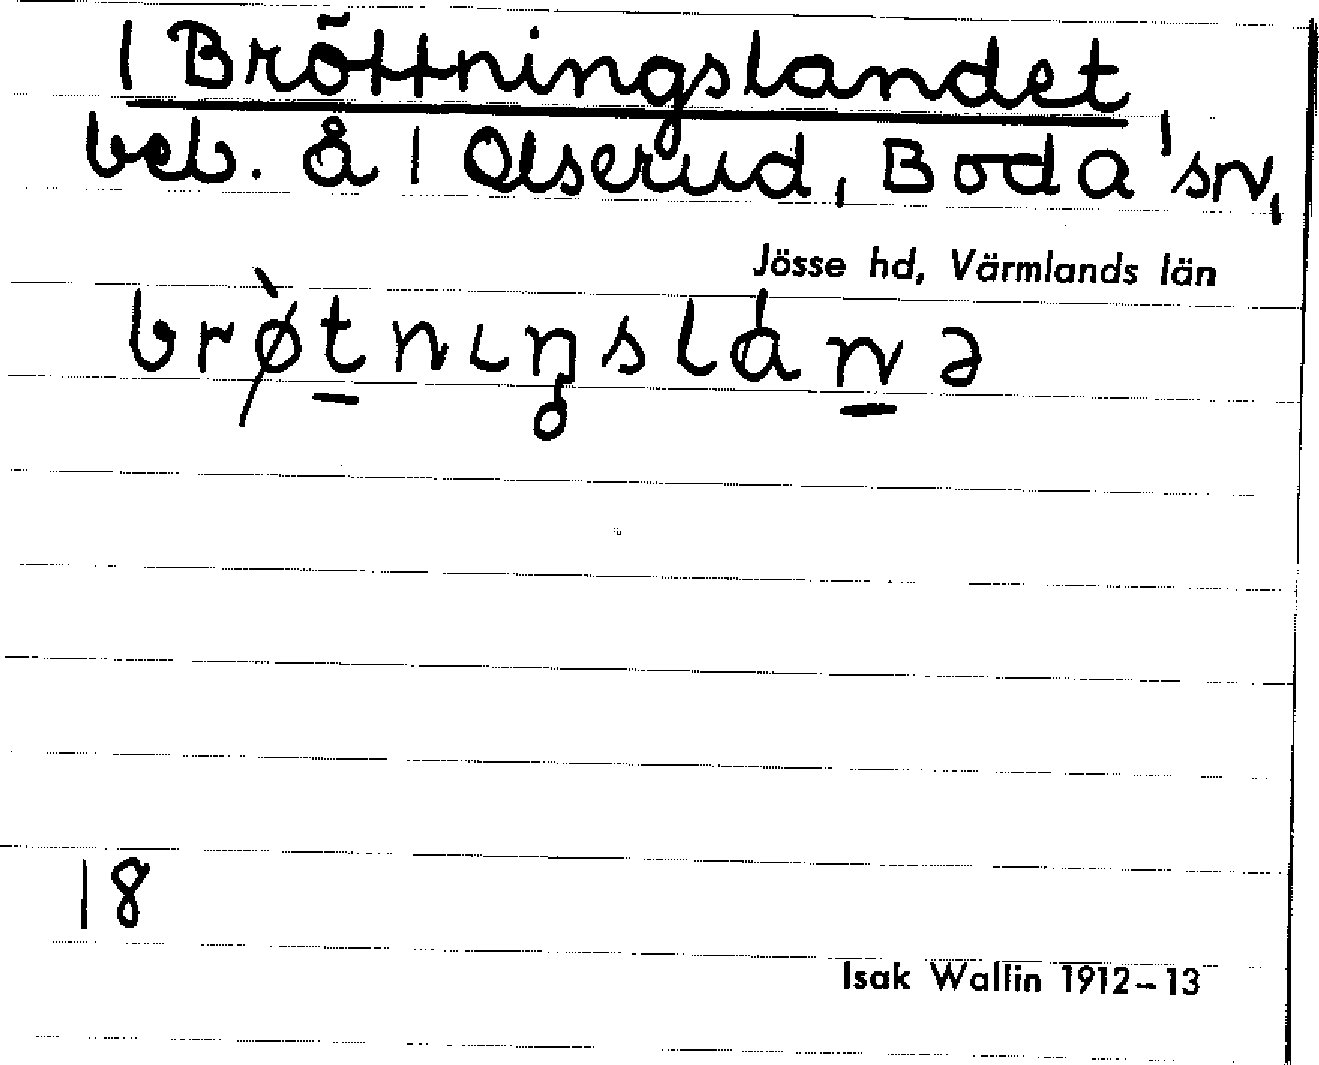 1 Bröttningslandet,
beb. å 1 Olserud, Boda sn,
Jösse hd, Värmlands län
brø̀tnıŋslánə
18
Isak Wallin 1912–13